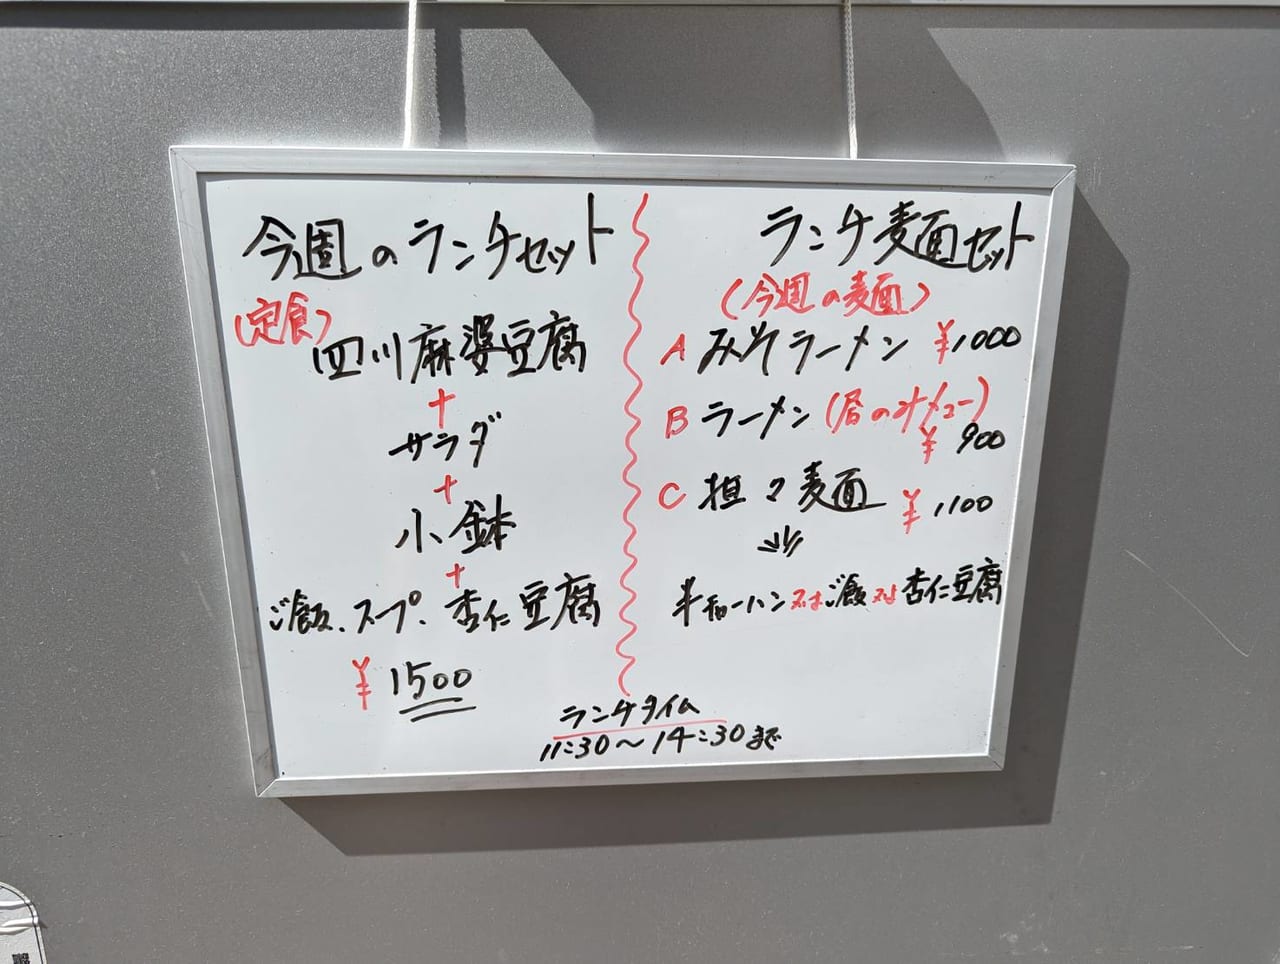 今週のランチセット
(定食)
四川麻婆豆腐
+
サラダ
+
小鉢
+
ご飯、スープ、杏仁豆腐
¥1500
ランチ麺セット
(今週の麺)
A みそラーメン ¥1000
B ラーメン (昼のオメュー)
¥900
C 担々麺 ¥1100
半チャーハン又はご飯又は杏仁豆腐
ランチタイム
11:30～14:30まで